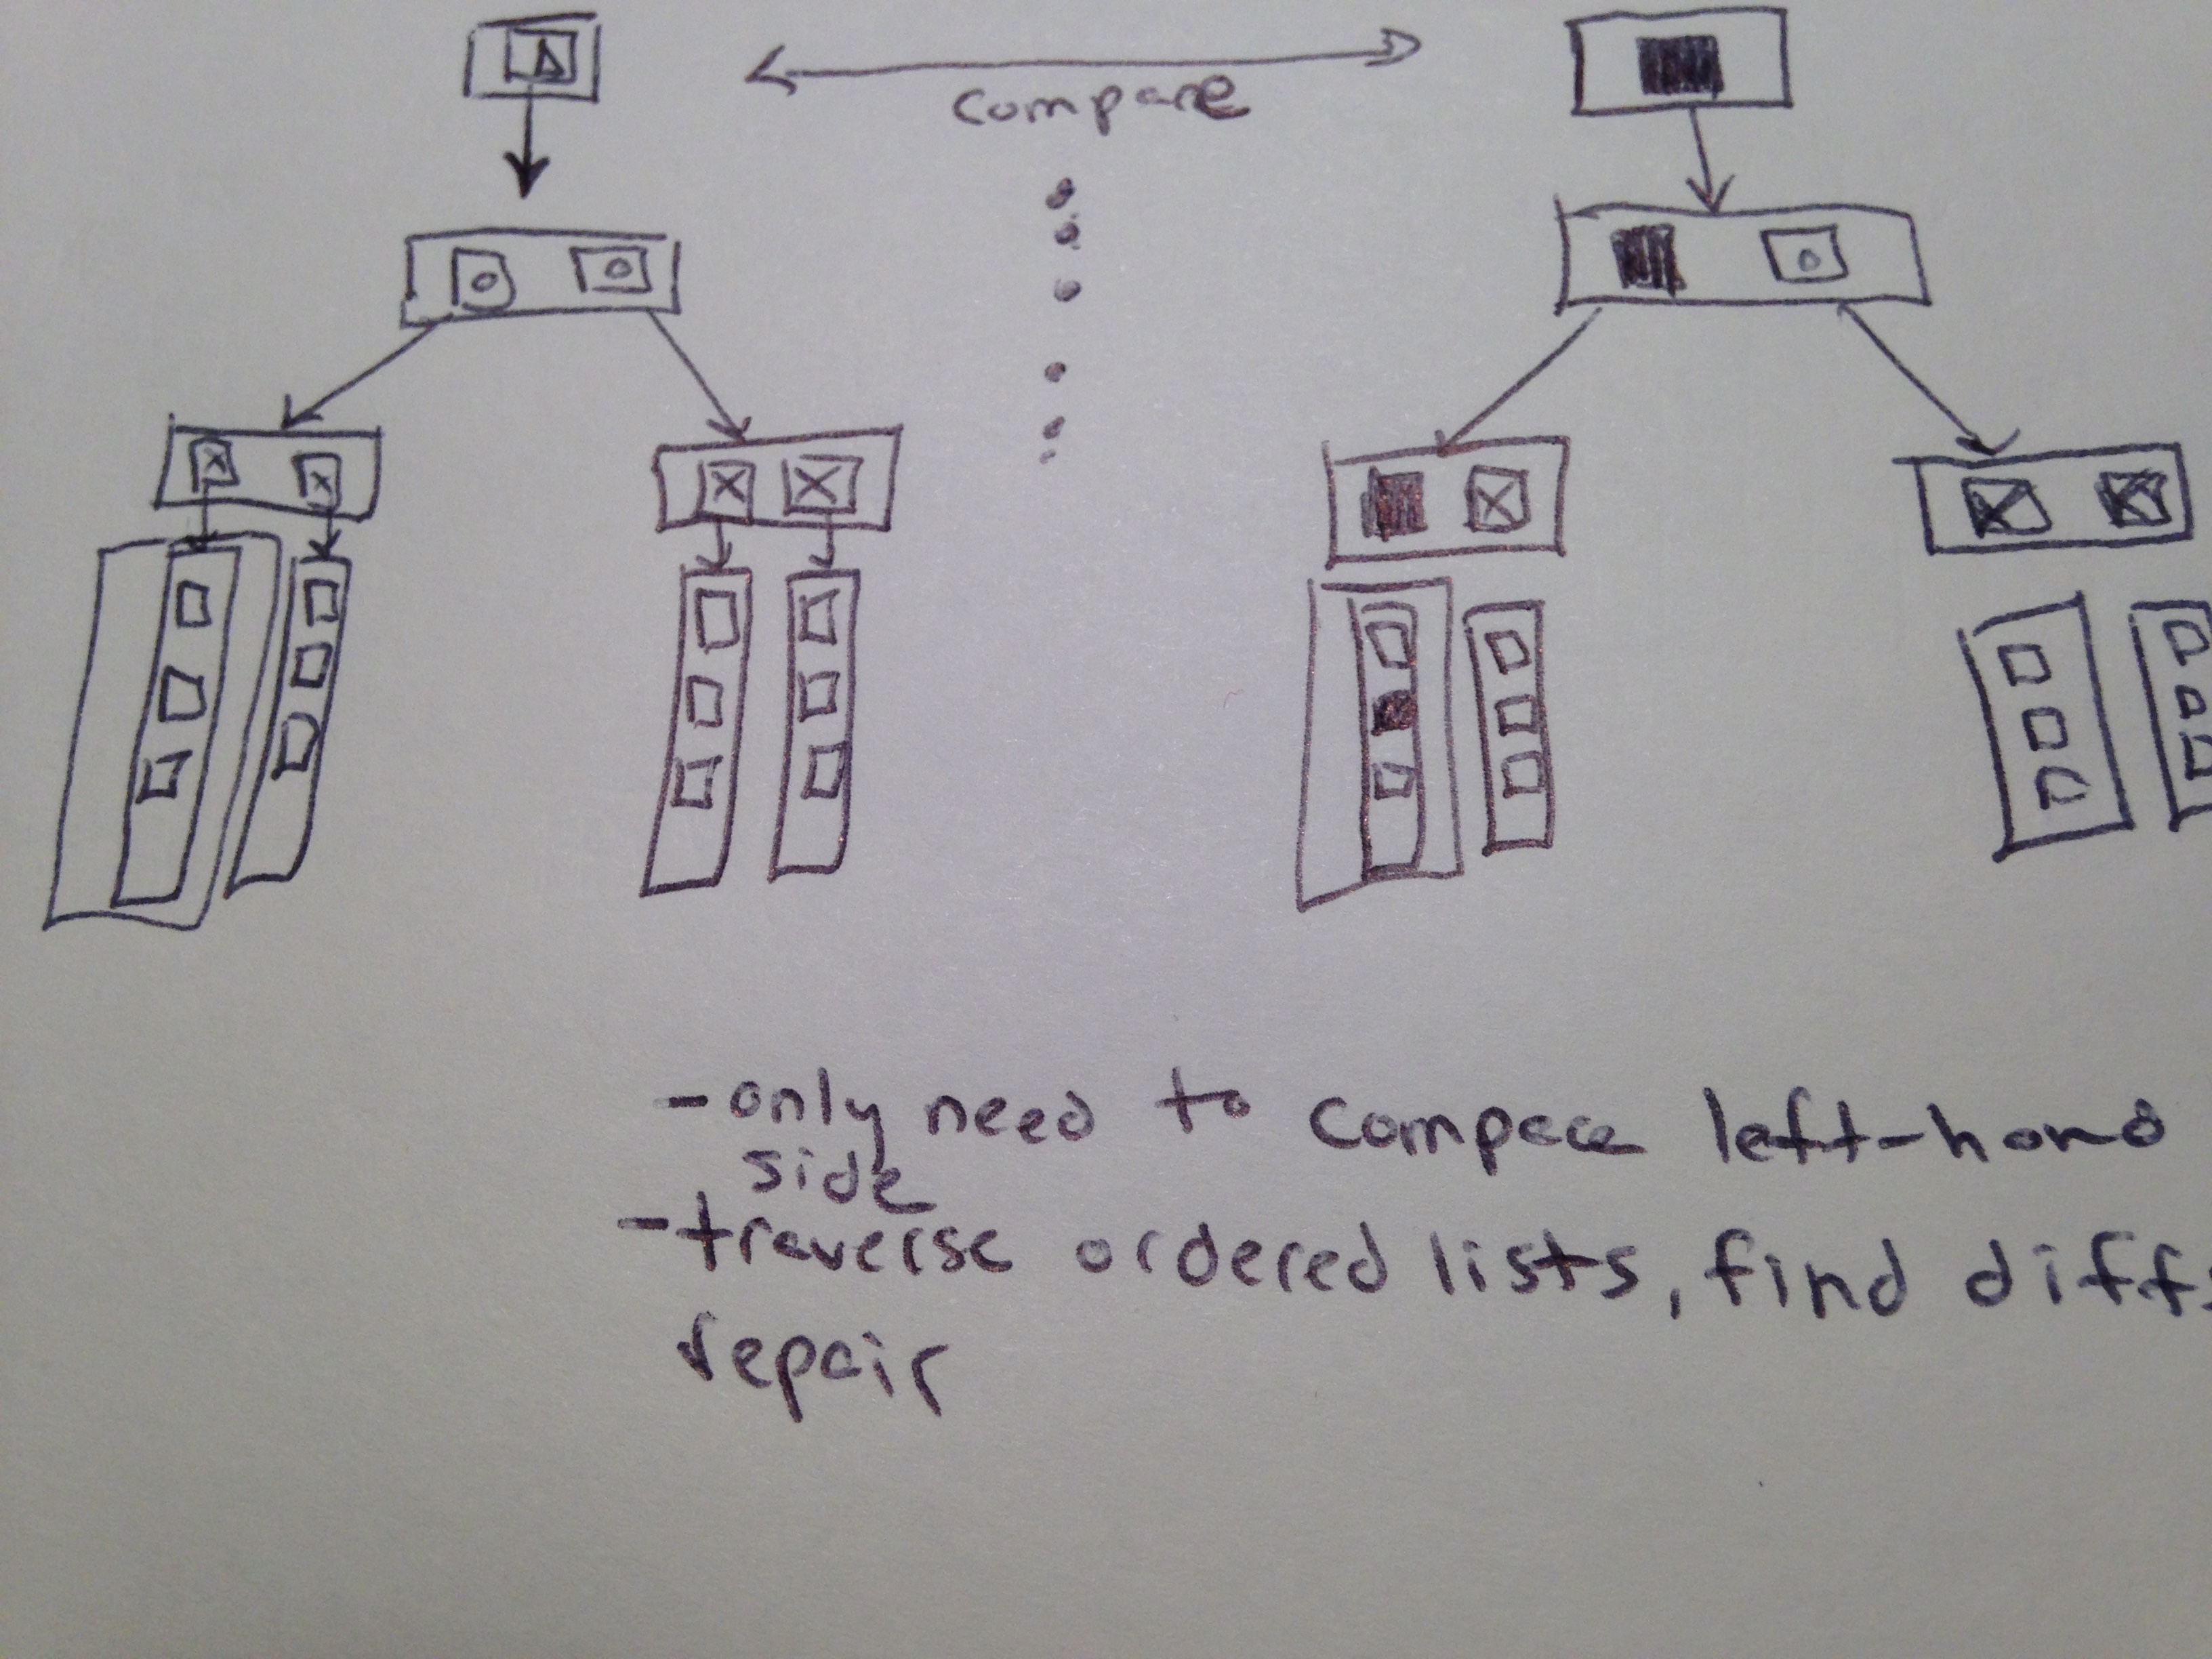 compare
- only need to compare left-hand
side
- traverse ordered lists, find diffs
repair